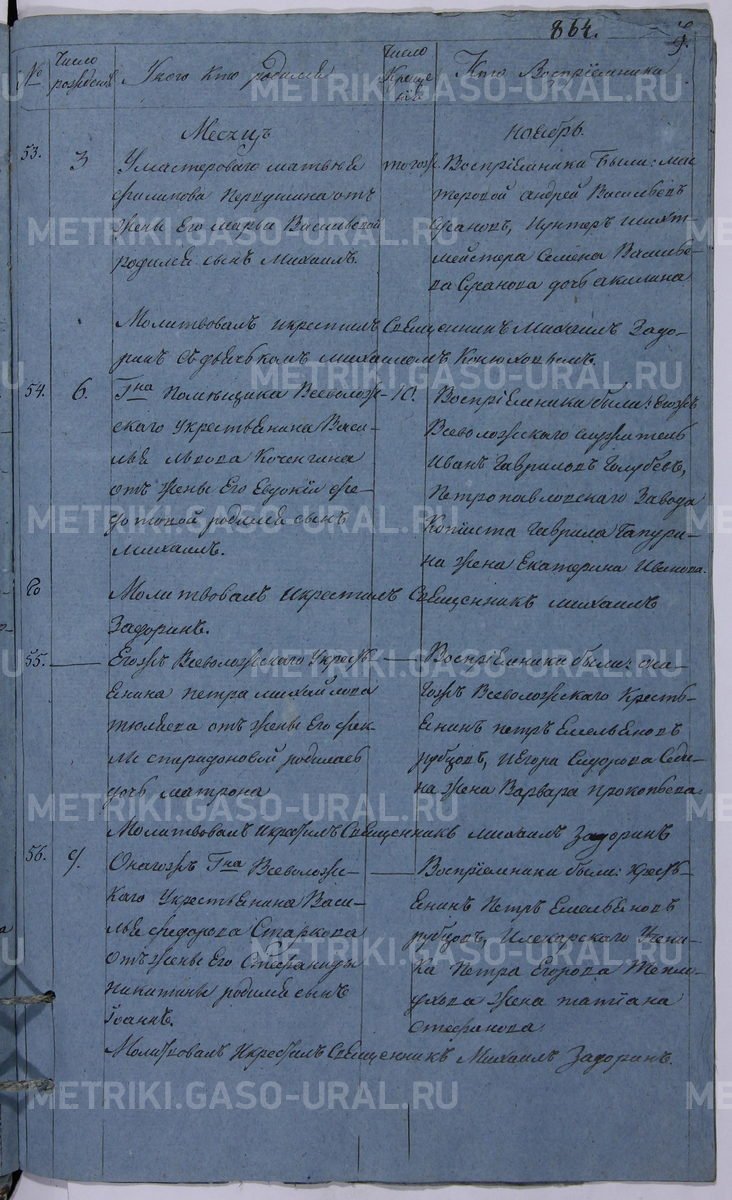 864.
№
Число рожденія
У кого кто родился
Число Крещенія
Кто Воспріемники
Месяцъ
ноябрь.
53.
3
Умастероваго матвея
филипова Первушина отъ
жены Его марьи Василевой
родился сынъ Михаилъ.
тогожъ
Воспріемники Были: мас
теровой андрей Васильевъ
Сусановъ, Иунтеръ шихт
мейстера Семена Василье
ва Сусанова дочь акилина
Молитвовалъ икрестилъ Священникъ Михаилъ Задо
ринъ съ дьячькомъ михаиломъ Конюховымъ.
54.
6.
Гна Помѣщика Всеволож
скаго укрестьянина Васи
лья львова Коченгина
отъ жены Его Евдокіи фе
дотовой родился сынъ
михаилъ.
10.
Воспріемники были: егожъ
Всеволожскаго служитель
Иванъ Гавриловъ Голубевъ,
Петропавловскаго Завода
Копіиста Гаврила
на жена Екатерина Иванова.
Молитвовалъ икрестилъ Священникъ михаилъ
Задоринъ.
55.
Егожъ Всеволожскаго Укресть
янина петра михайлова
тюляева отъ жены Его фек
лы спиридоновой родилась
дочь матрона
Воспріемники были: она
гожъ Всеволожскаго Кресть
янинъ петръ Емельяновъ
рубцовъ, иЕгора Сидорова
на жена Варвара Прокопьева.
Молитвовалъ икрестилъ Священникъ михаилъ Задоринъ
56.
9.
Онагожъ Гна Всеволожс
каго Укрестьянина Васи
лья федорова Старкова
Отъ жены Его Стефаниды
никитины родился сынъ
іоаннъ.
Воспріемники были: кресть
янинъ Петръ Емельяновъ
рубцовъ, илекарскаго учени
ка Петра Егорова
жена татіана
стефанова
Молитвовалъ Икрестилъ Священникъ Михаилъ Задоринъ.
METRIKI.GASO-URAL.RU